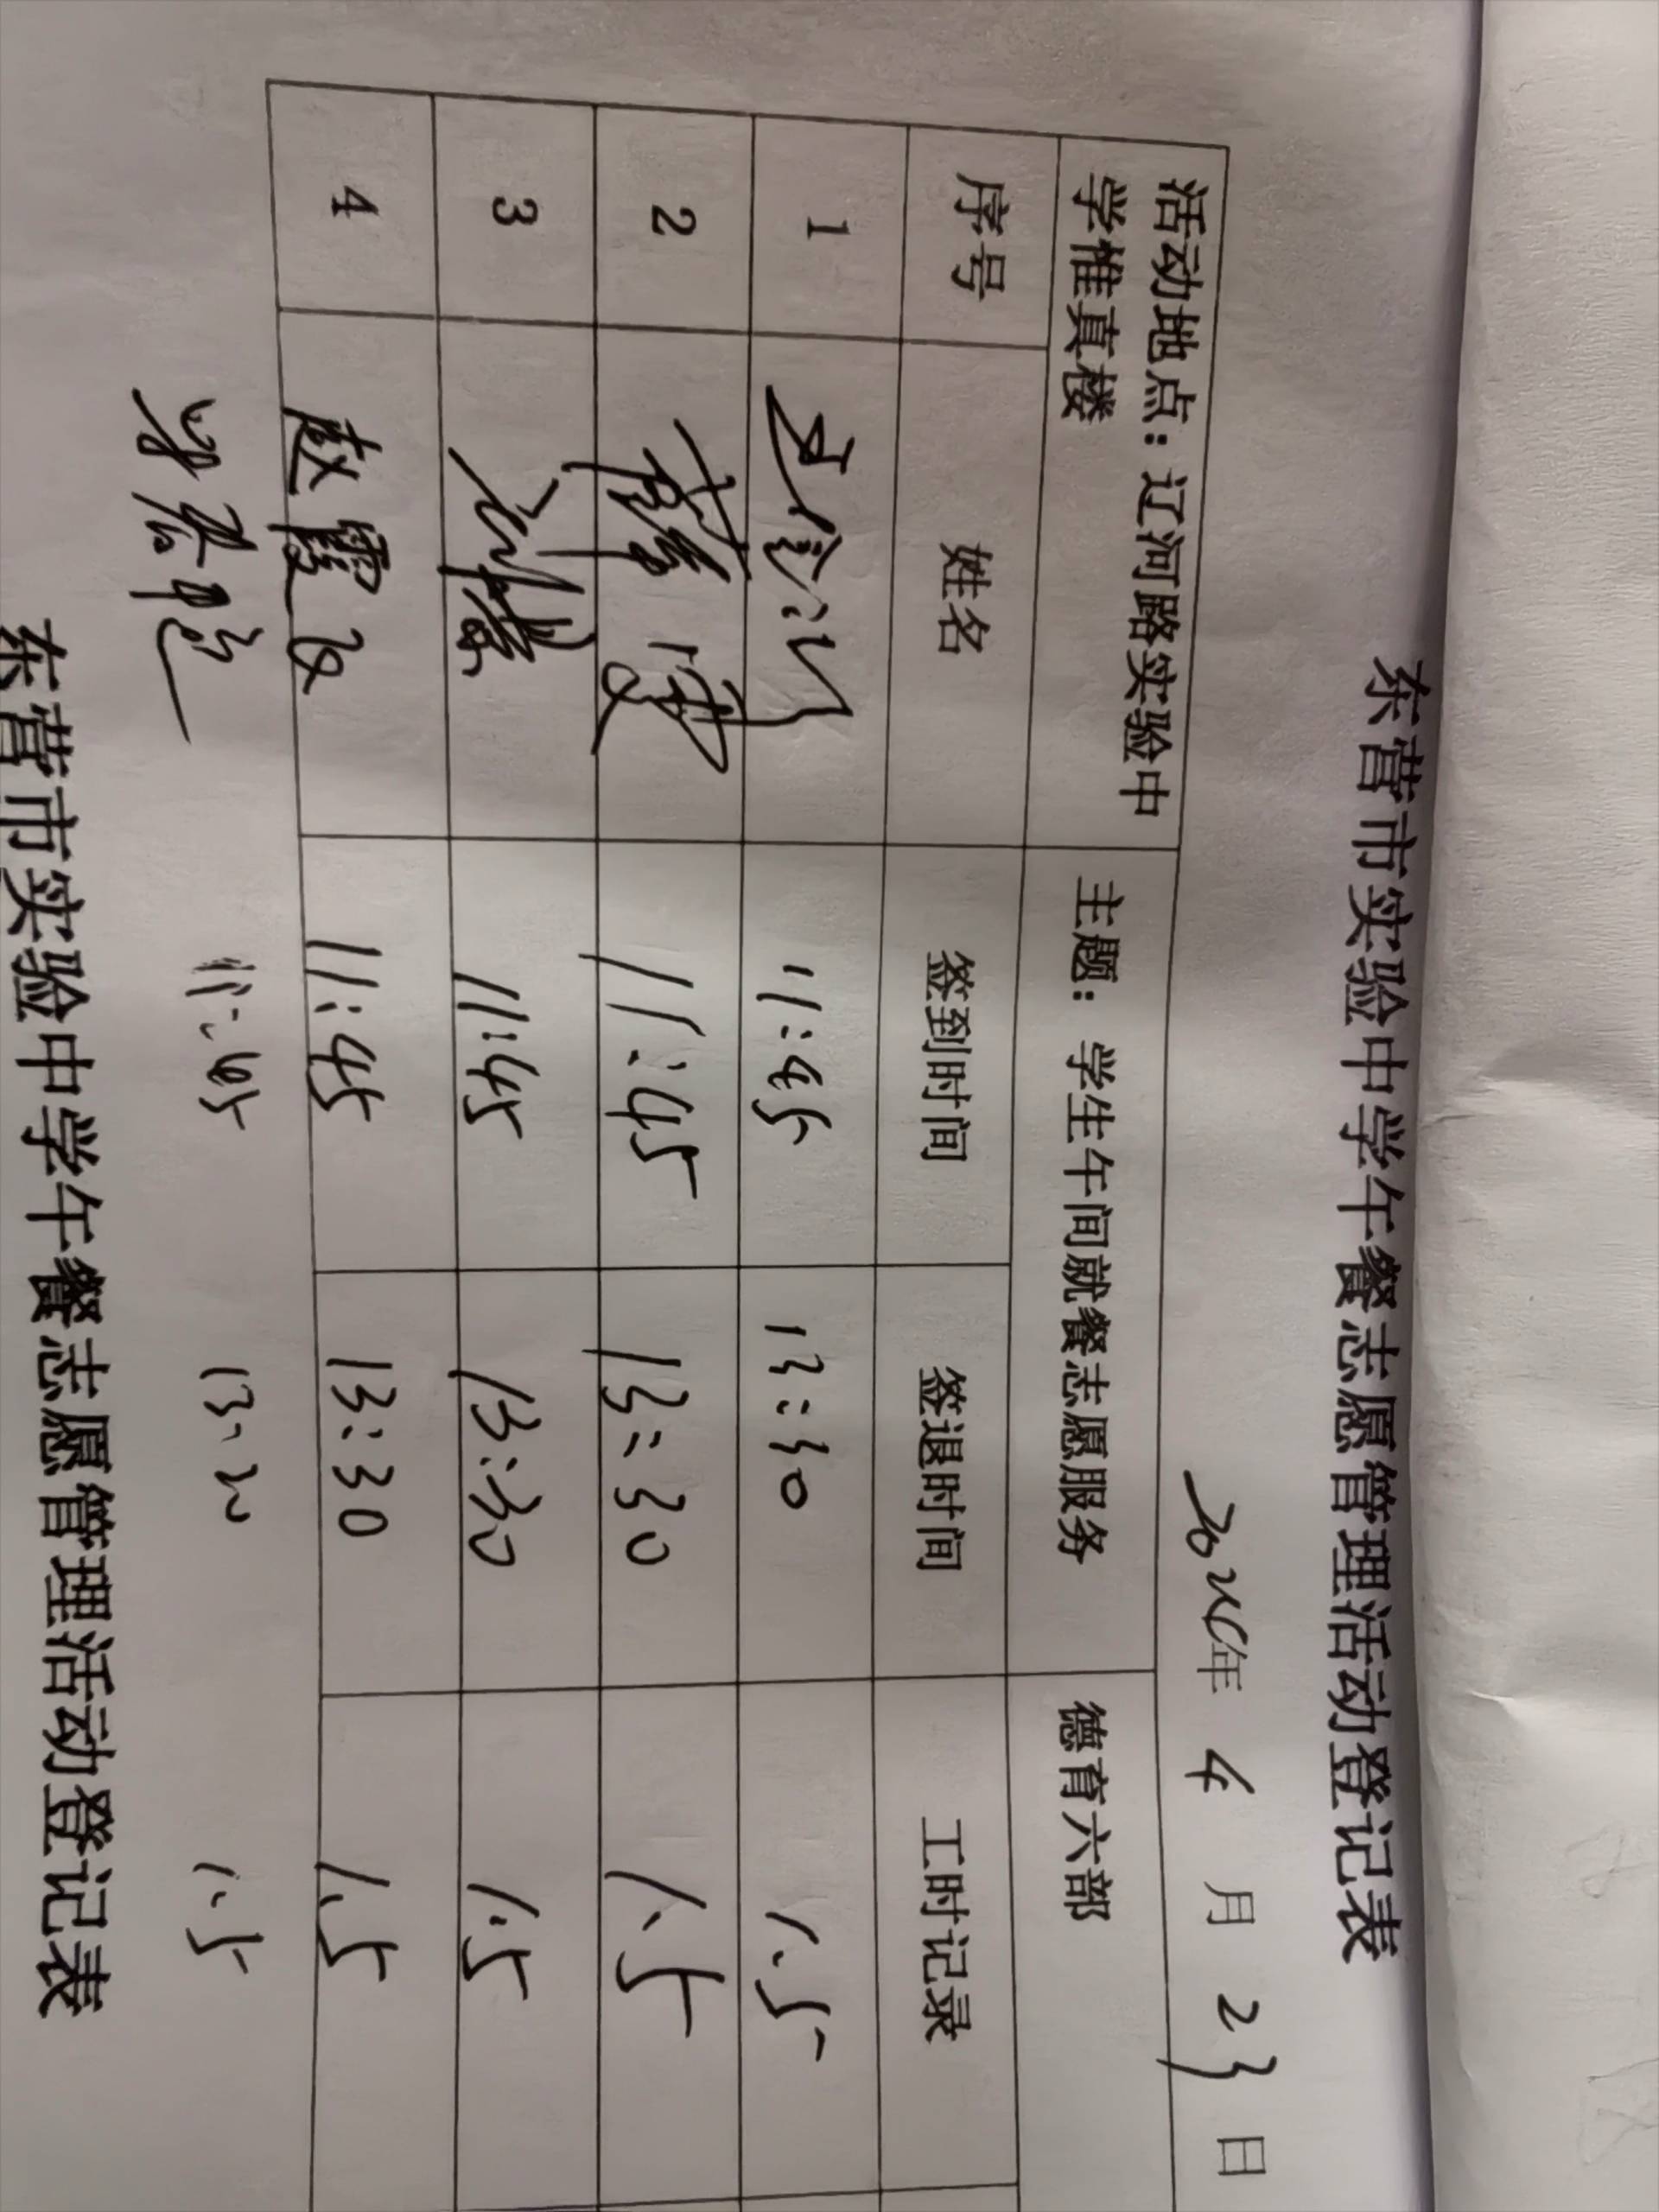 东营市实验中学午餐志愿管理活动登记表
年 4 月 23 日
活动地点：辽河路实验中学惟真楼 主题：学生午间就餐志愿服务 德育六部
序号 姓名 签到时间 签退时间 工时记录
1 11:45 13:30 1.5
2 11:45 13:30 1.5
3 11:45 13:30 1.5
4 赵霞飞 11:45 13:30 1.5
11:45 13:30 1.5
东营市实验中学午餐志愿管理活动登记表